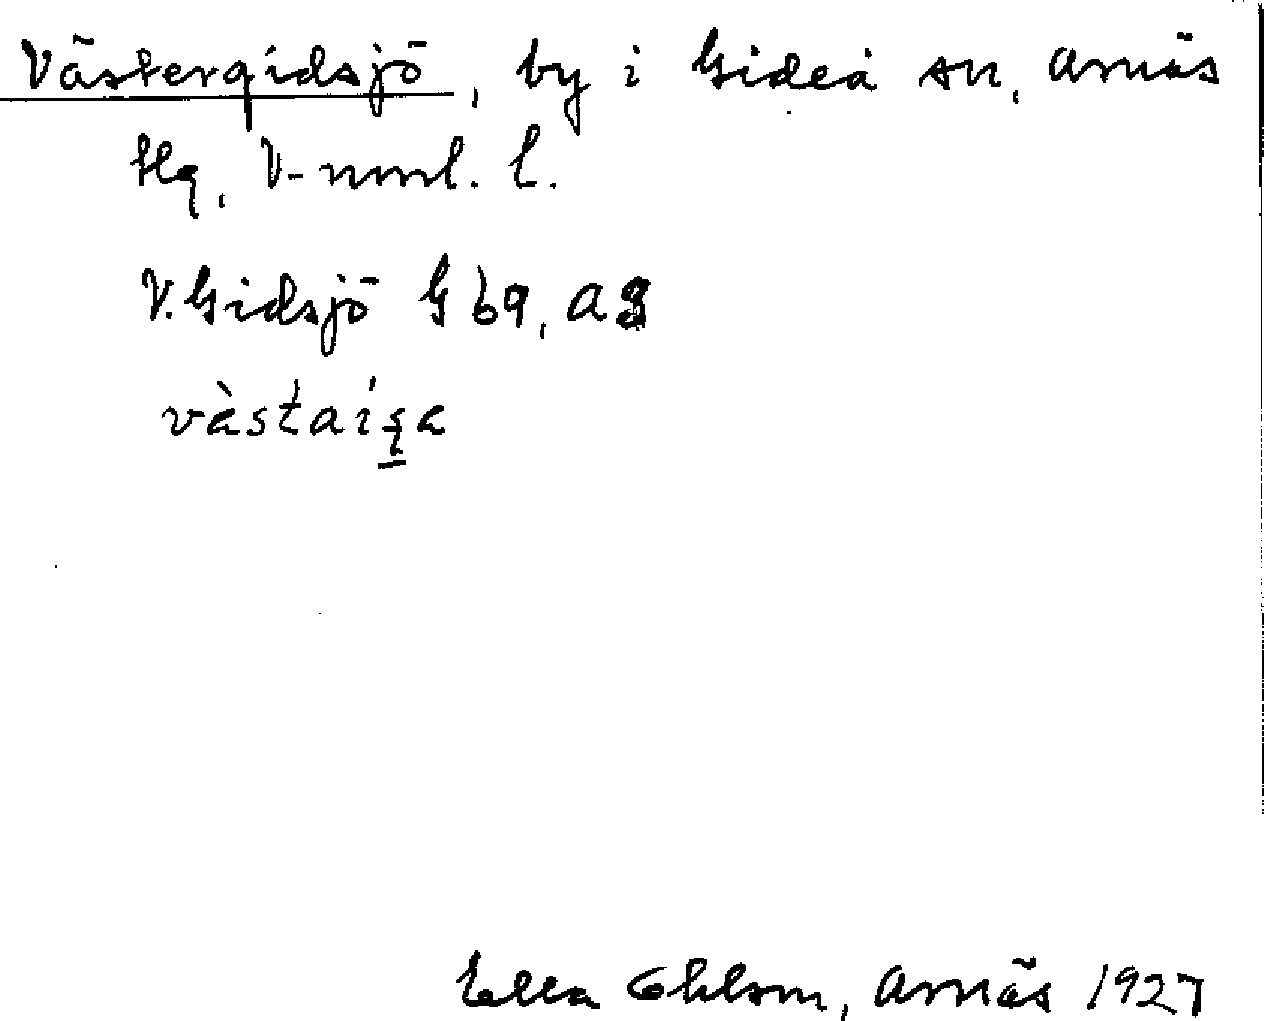 Västergidsjö, by i Gideå sn, Arnäs
tlg, V-nml. l.
V. Gidsjö G 69, A 8
vàstaişa
Ella Ohlson, Arnäs 1927